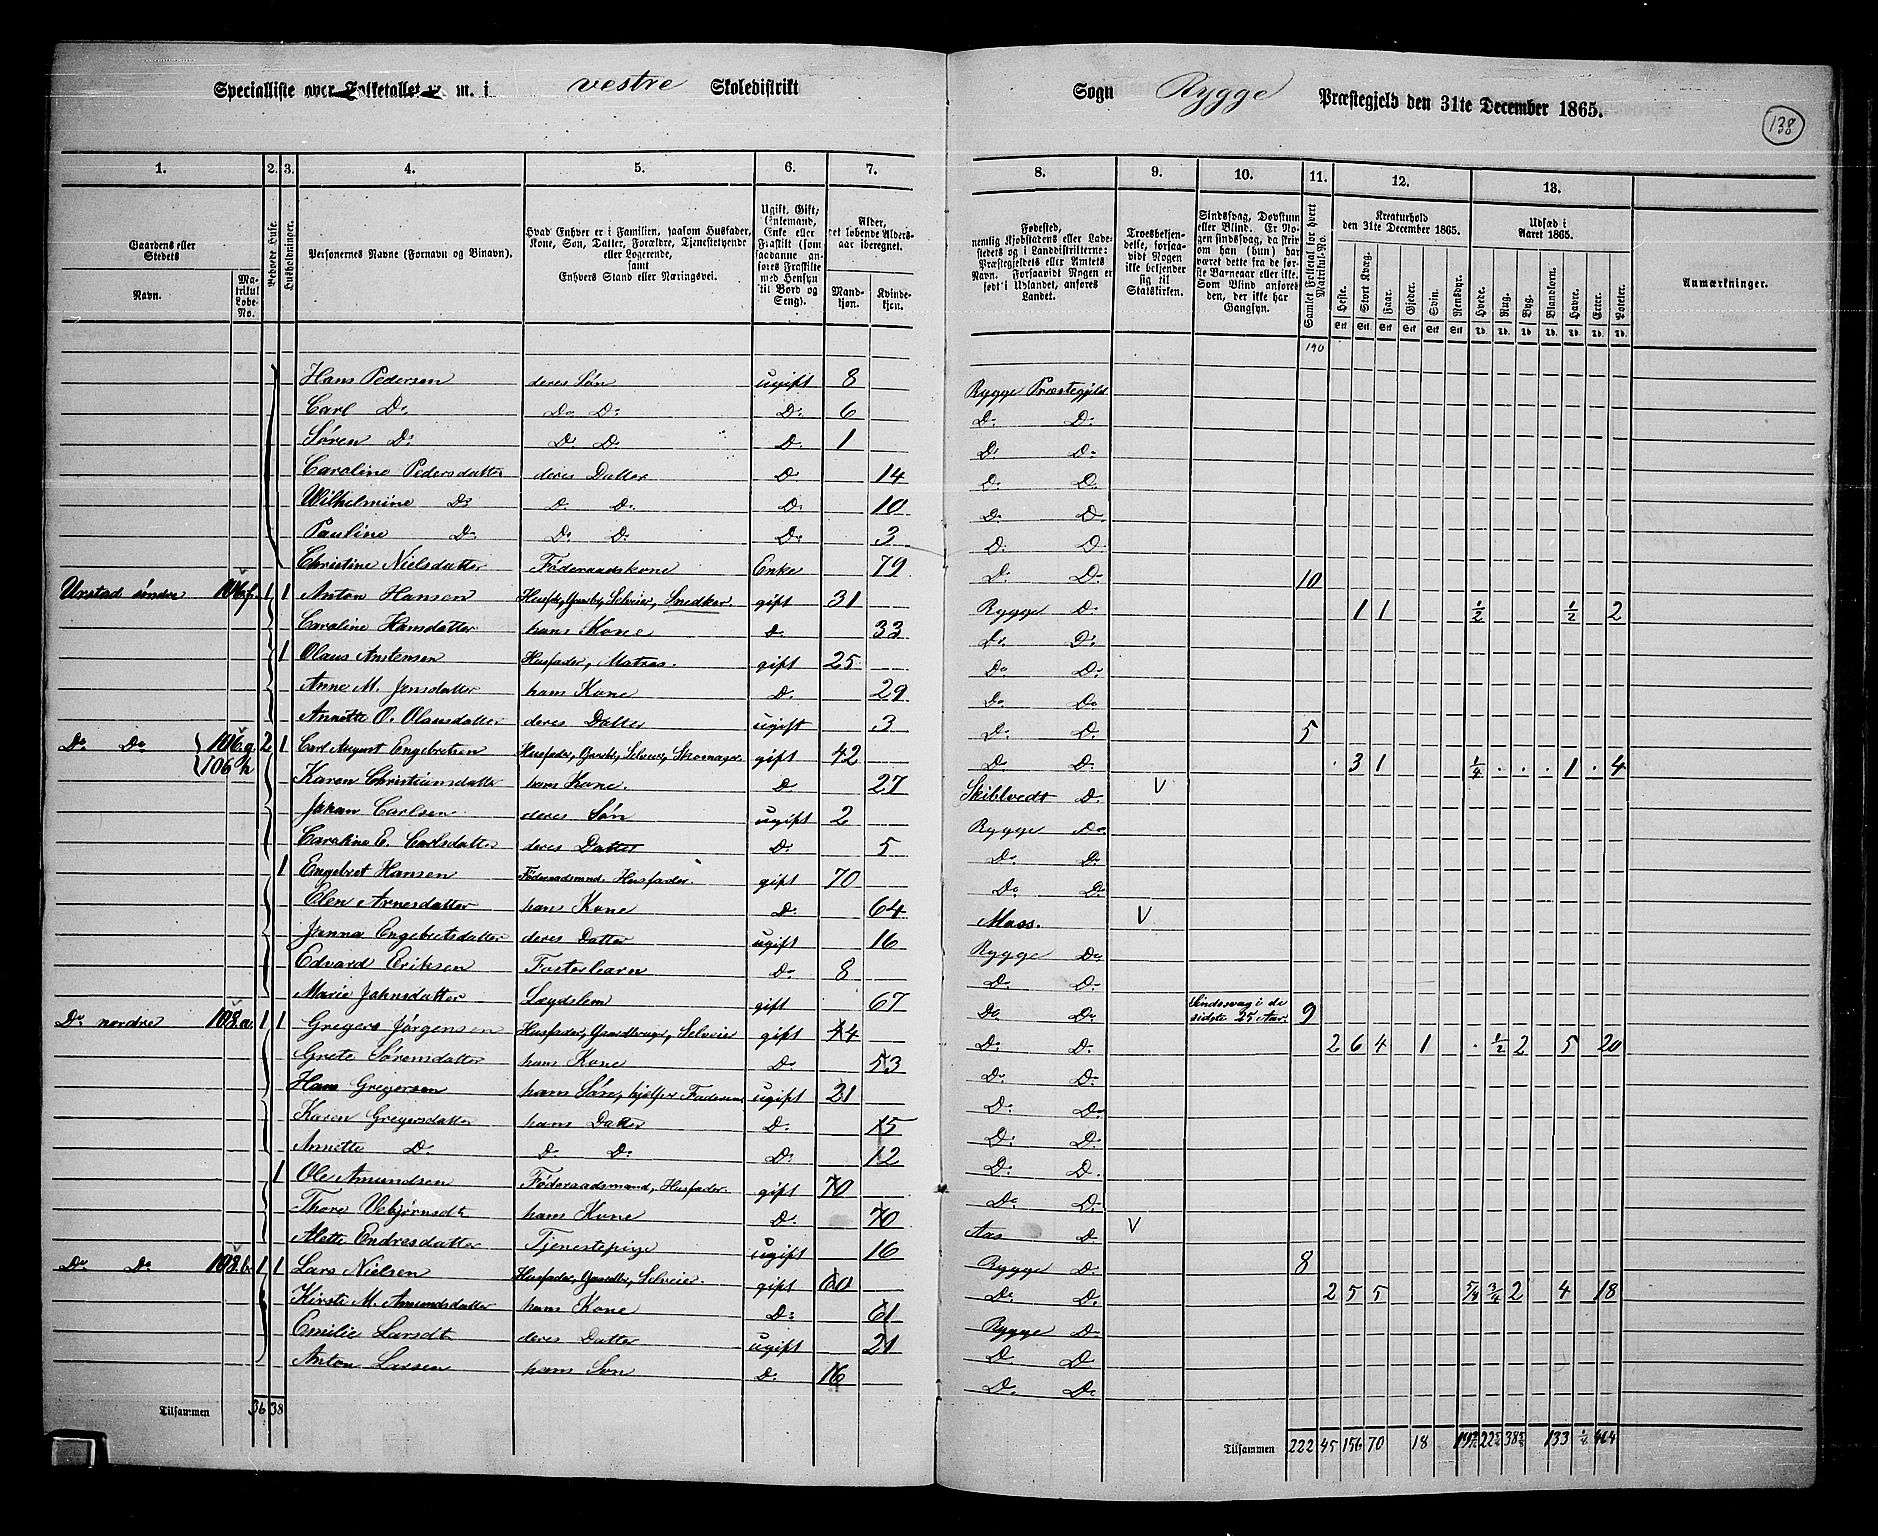 Specialliste over Folketallet m. m. i vestre Skoledistrikt
Sogn Rygge Præstegjeld den 31te December 1865.
138
1. 2. 3. 4. 5. 6. 7. 8. 9. 10. 11. 12. 13.
Gaardens eller Stedets
Navn.
Matrikul Løbe-No.
Beboede Huse.
Husholdninger.
Personernes Navne (Fornavn og Binavn).
Hvad Enhver er i Familien, saasom Husfader, Kone, Søn, Datter, Forældre, Tjenestetyende eller Logerende, samt Enhvers Stand eller Næringsvei.
Ugift, Gift, Enkemand, Enke eller Fraskilt (som saadanne anføres Fraskilte med Hensyn til Bord og Seng).
Alder, det løbende Alders-aar iberegnet.
Mand-kjøn. Kvinde-kjøn.
Fødested, nemlig Kjøbstadens eller Ladestedets og i Landdistrikterne: Præstegjeldets eller Amtets Navn. Forsaavidt Nogen er født i Udlandet, anføres Landet.
Troesbekjendelse, forsaavidt Nogen ikke bekjender sig til Statskirken.
Sindssvag, Døvstum eller Blind. Er Nogen sindssvag, da skriv om han (hun) har været dette fra de første Barneaar eller ikke. Som Blind anføres den, der ikke har Gangsyn.
Samlet Folketal for hvert Matrikul-No.
Kreaturhold den 31te December 1865.
Heste. Stort Kvæg. Faar. Gjeder. Svin. Rensdyr.
Udsæd i Aaret 1865.
Hvede. Rug. Byg. Blandkorn. Havre. Erter. Poteter.
Anmærkninger.
190
Hans Pedersen deres Søn ugift 8 Rygge Præstegjeld
Carl Do Do Do Do 6 Do Do
Søren Do Do Do Do 1 Do Do
Caroline Pedersdatter deres Datter Do 14 Do Do
Wilhelmine Do Do Do Do 10 Do Do
Pauline Do Do Do Do 3 Do Do
Christine Nielsdatter Føderaadskone Enke 79 Do Do 10
106f. 1 1 Anton Hansen Husfd, Gaardbr, Selveier, Snedker. gift 31 Rygge Do 1 1 1/2 1/2 2
Caroline Hansdatter hans Kone Do 33 Do Do
1 Olaus Anstensen Husfader, Matros. gift 25 Do Do
Anne M. Jensdatter hans Kone Do 29 Do Do
Annette O. Olausdatter deres Datter ugift 3 Do Do 5
Do Do 106g 2 1 Carl August Engebretsen Husfader, Gaardb, Selveier, Skomager gift 42 Do Do 3 1 1/4 1 4
106h Karen Christiansdatter hans Kone. Do 27 Skiblvedt Do V
Johan Carlsen deres Søn ugift 2 Rygge Do
Caroline E. Carlsdatter deres Datter Do 5 Do Do
1 Engebret Hansen Føderaadsmand, Husfader. gift 70 Do Do
Elen Arnesdatter hans Kone Do 64 Moss. V
Janna Engebretsdatter deres Datter ugift 16 Rygge Do
Edvard Eriksen Fosterbarn Do 8 Do Do
Marie Johnsdatter Lægdslem gift 67 Do Do Sindssvag i de sidste 25 Aar. 9
Do nordre 108a 1 1 Gregers Jørgensen Husfader, Gaardbruger, Selveier gift 44 Do Do 2 6 4 1 1/2 2 5 20
Grete Sørensdatter hans Kone Do 53 Do Do
Hans Gregersen hans Søn, hjelper Faderen ugift 21 Do Do
Karen Gregersdatter hans Datter Do 15 Do Do
Annette Do Do Do Do 12 Do Do
1 Ole Amundsen Føderaadsmand, Husfader. gift 70 Do Do
Thore Vebjørnsdt hans Kone Do 70 Aas Do V
Alette Endresdatter Tjenestepige ugift 16 Rygge Do 8
Do Do 108b 1 1 Lars Nielsen Husfader, Gaardbr, Selveier. gift 60 Do Do 2 5 5 5/4 3/4 2 4 18
Kirsti M. Amundsdatter hans Kone Do 61 Rygge Do
Emilie Larsdt deres Datter ugift 21 Do Do
Anton Larsen hans Søn Do 16 Do Do
Tilsammen 36 38
Tilsammen 222 45 156 70 18 133 1/4 464